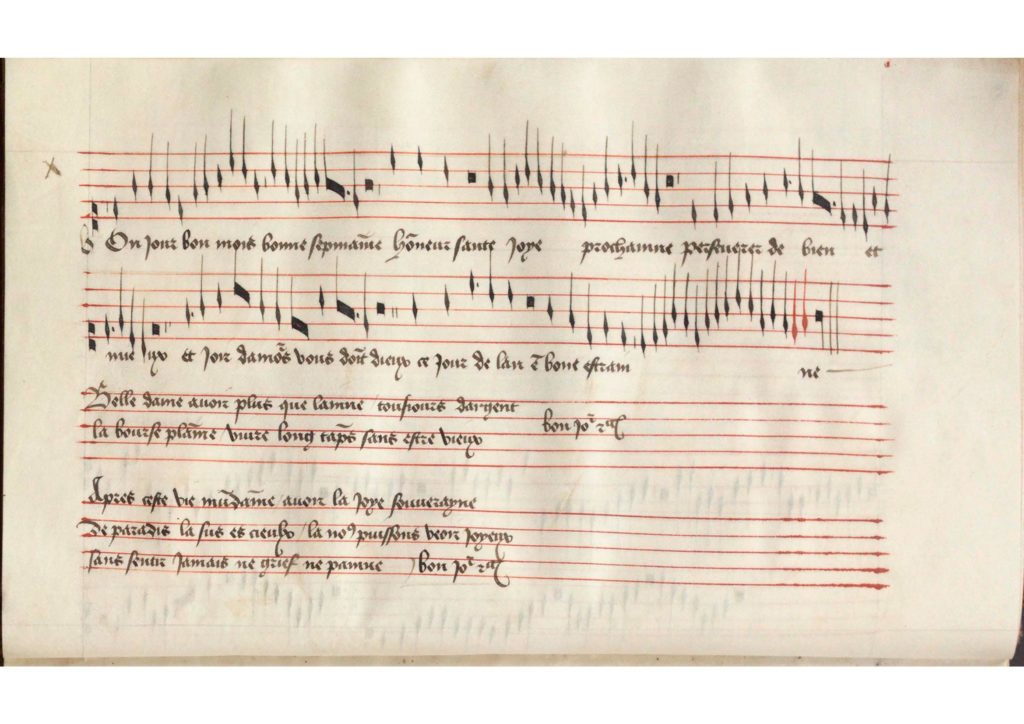 On jour bon mois bonne sepmai̅ne ho̅neur sante joye prochainne perseverer de bien et
mieulx et joir damo̅rs vous doi̅t dieux ce jour de lan e̅ bone estrain ne
Belle dame avoir plus que lainne tousiours dargent
la bourse plai̅ne vivre long ta̅ps sans estre vieux bon jor
Apres ceste vie mu̅dai̅ne avoir la joye souverayne
de paradis la sus es cieulx la nos puissons veoir joyeux
sans sentir jamais ne grief ne painne bon jor